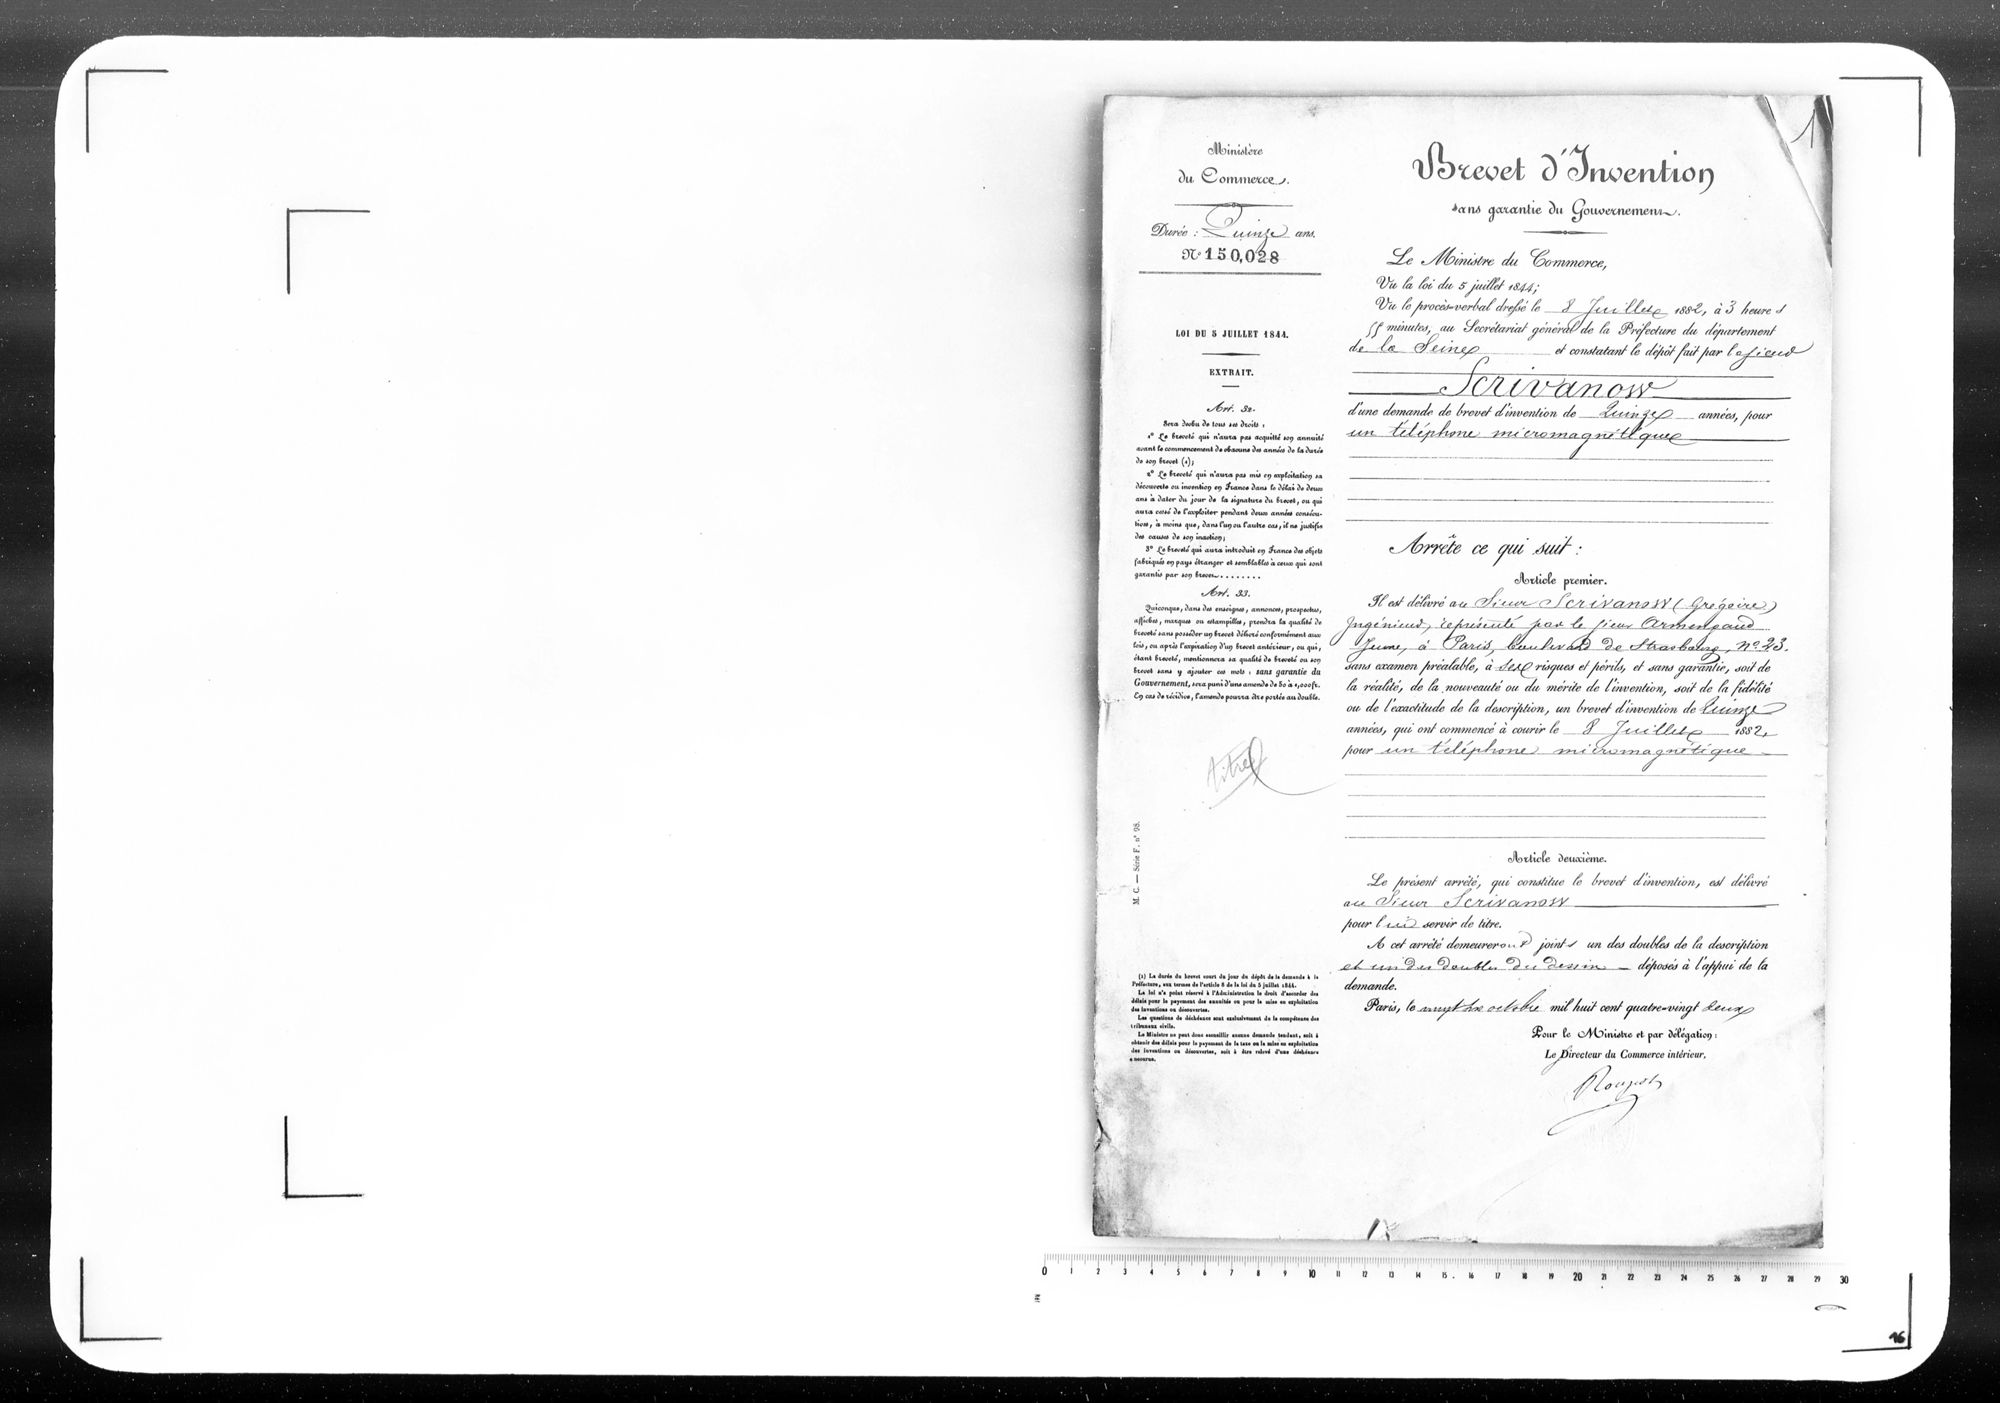 1
Ministère
du Commerce.
Durée : Quinze ans.
N° 150,028
LOI DU 5 JUILLET 1844.
EXTRAIT.
Art. 32.
Sera déchu de tous ses droits :
1° Le breveté qui n'aura pas acquitté son annuité
avant le commencement de chacune des années de la durée
de son brevet (1);
2° Le breveté qui n'aura pas mis en exploitation sa
découverte ou invention en France dans le délai de deux
ans à dater du jour de la signature du brevet, ou qui
aura cessé de l'exploiter pendant deux années consécu-
tives, à moins que, dans l'un ou l'autre cas, il ne justifie
des causes de son inaction;
3° Le breveté qui aura introduit en France des objets
fabriqués en pays étranger et semblables à ceux qui sont
garantis par son brevet........
Art. 33.
Quiconque, dans des enseignes, annonces, prospectus,
affiches, marques ou estampilles, prendra la qualité de
breveté sans posséder un brevet délivré conformément aux
lois, ou après l'expiration d'un brevet antérieur, ou qui,
étant breveté, mentionnera sa qualité de breveté ou son
brevet sans y ajouter ces mots : sans garantie du
Gouvernement, sera puni d'une amende de 50 à 1,000 fr.
En cas de récidive, l'amende pourra être portée au double.
titre
M. C. — Série F. n° 98.
(1) La durée du brevet court du jour du dépôt de la demande à la
Préfecture, aux termes de l'article 8 de la loi du 5 juillet 1844.
La loi n'a point réservé à l'Administration le droit d'accorder des
délais pour le payement des annuités ou pour la mise en exploitation
des inventions ou découvertes.
Les questions de déchéance sont exclusivement de la compétence des
tribunaux civils.
Le Ministre ne peut donc accueillir aucune demande tendant, soit à
obtenir des délais pour le payement de la taxe ou la mise en exploitation
des inventions ou découvertes, soit à être relevé d'une déchéance
encourue.
Brevet d'Invention
sans garantie du Gouvernement.
Le Ministre du Commerce,
Vu la loi du 5 juillet 1844;
Vu le procès-verbal dressé le 8 Juillet 1882, à 3 heures
55 minutes, au Secrétariat général de la Préfecture du département
de la Seine et constatant le dépôt fait par le sieur
Scrivanow
d'une demande de brevet d'invention de Quinze années, pour
un téléphone micromagnétique
Arrête ce qui suit :
Article premier.
Il est délivré au Sieur Scrivanow (Grégoire)
Ingénieur, représenté par le sieur Armengaud
Jeune, à Paris, boulevard de Strasbourg, N° 23.
sans examen préalable, à ses risques et périls, et sans garantie, soit de
la réalité, de la nouveauté ou du mérite de l'invention, soit de la fidélité
ou de l'exactitude de la description, un brevet d'invention de Quinze
années, qui ont commencé à courir le 8 Juillet 1882,
pour un téléphone micromagnétique
Article deuxième.
Le présent arrêté, qui constitue le brevet d'invention, est délivré
au Sieur Scrivanow
pour lui servir de titre.
A cet arrêté demeureront joints un des doubles de la description
et un des doubles du dessin déposés à l'appui de la
demande.
Paris, le octobre mil huit cent quatre-vingt deux
Pour le Ministre et par délégation :
Le Directeur du Commerce intérieur,
0 1 2 3 4 5 6 7 8 9 10 11 12 13 14 15 16 17 18 19 20 21 22 23 24 25 26 27 28 29 30